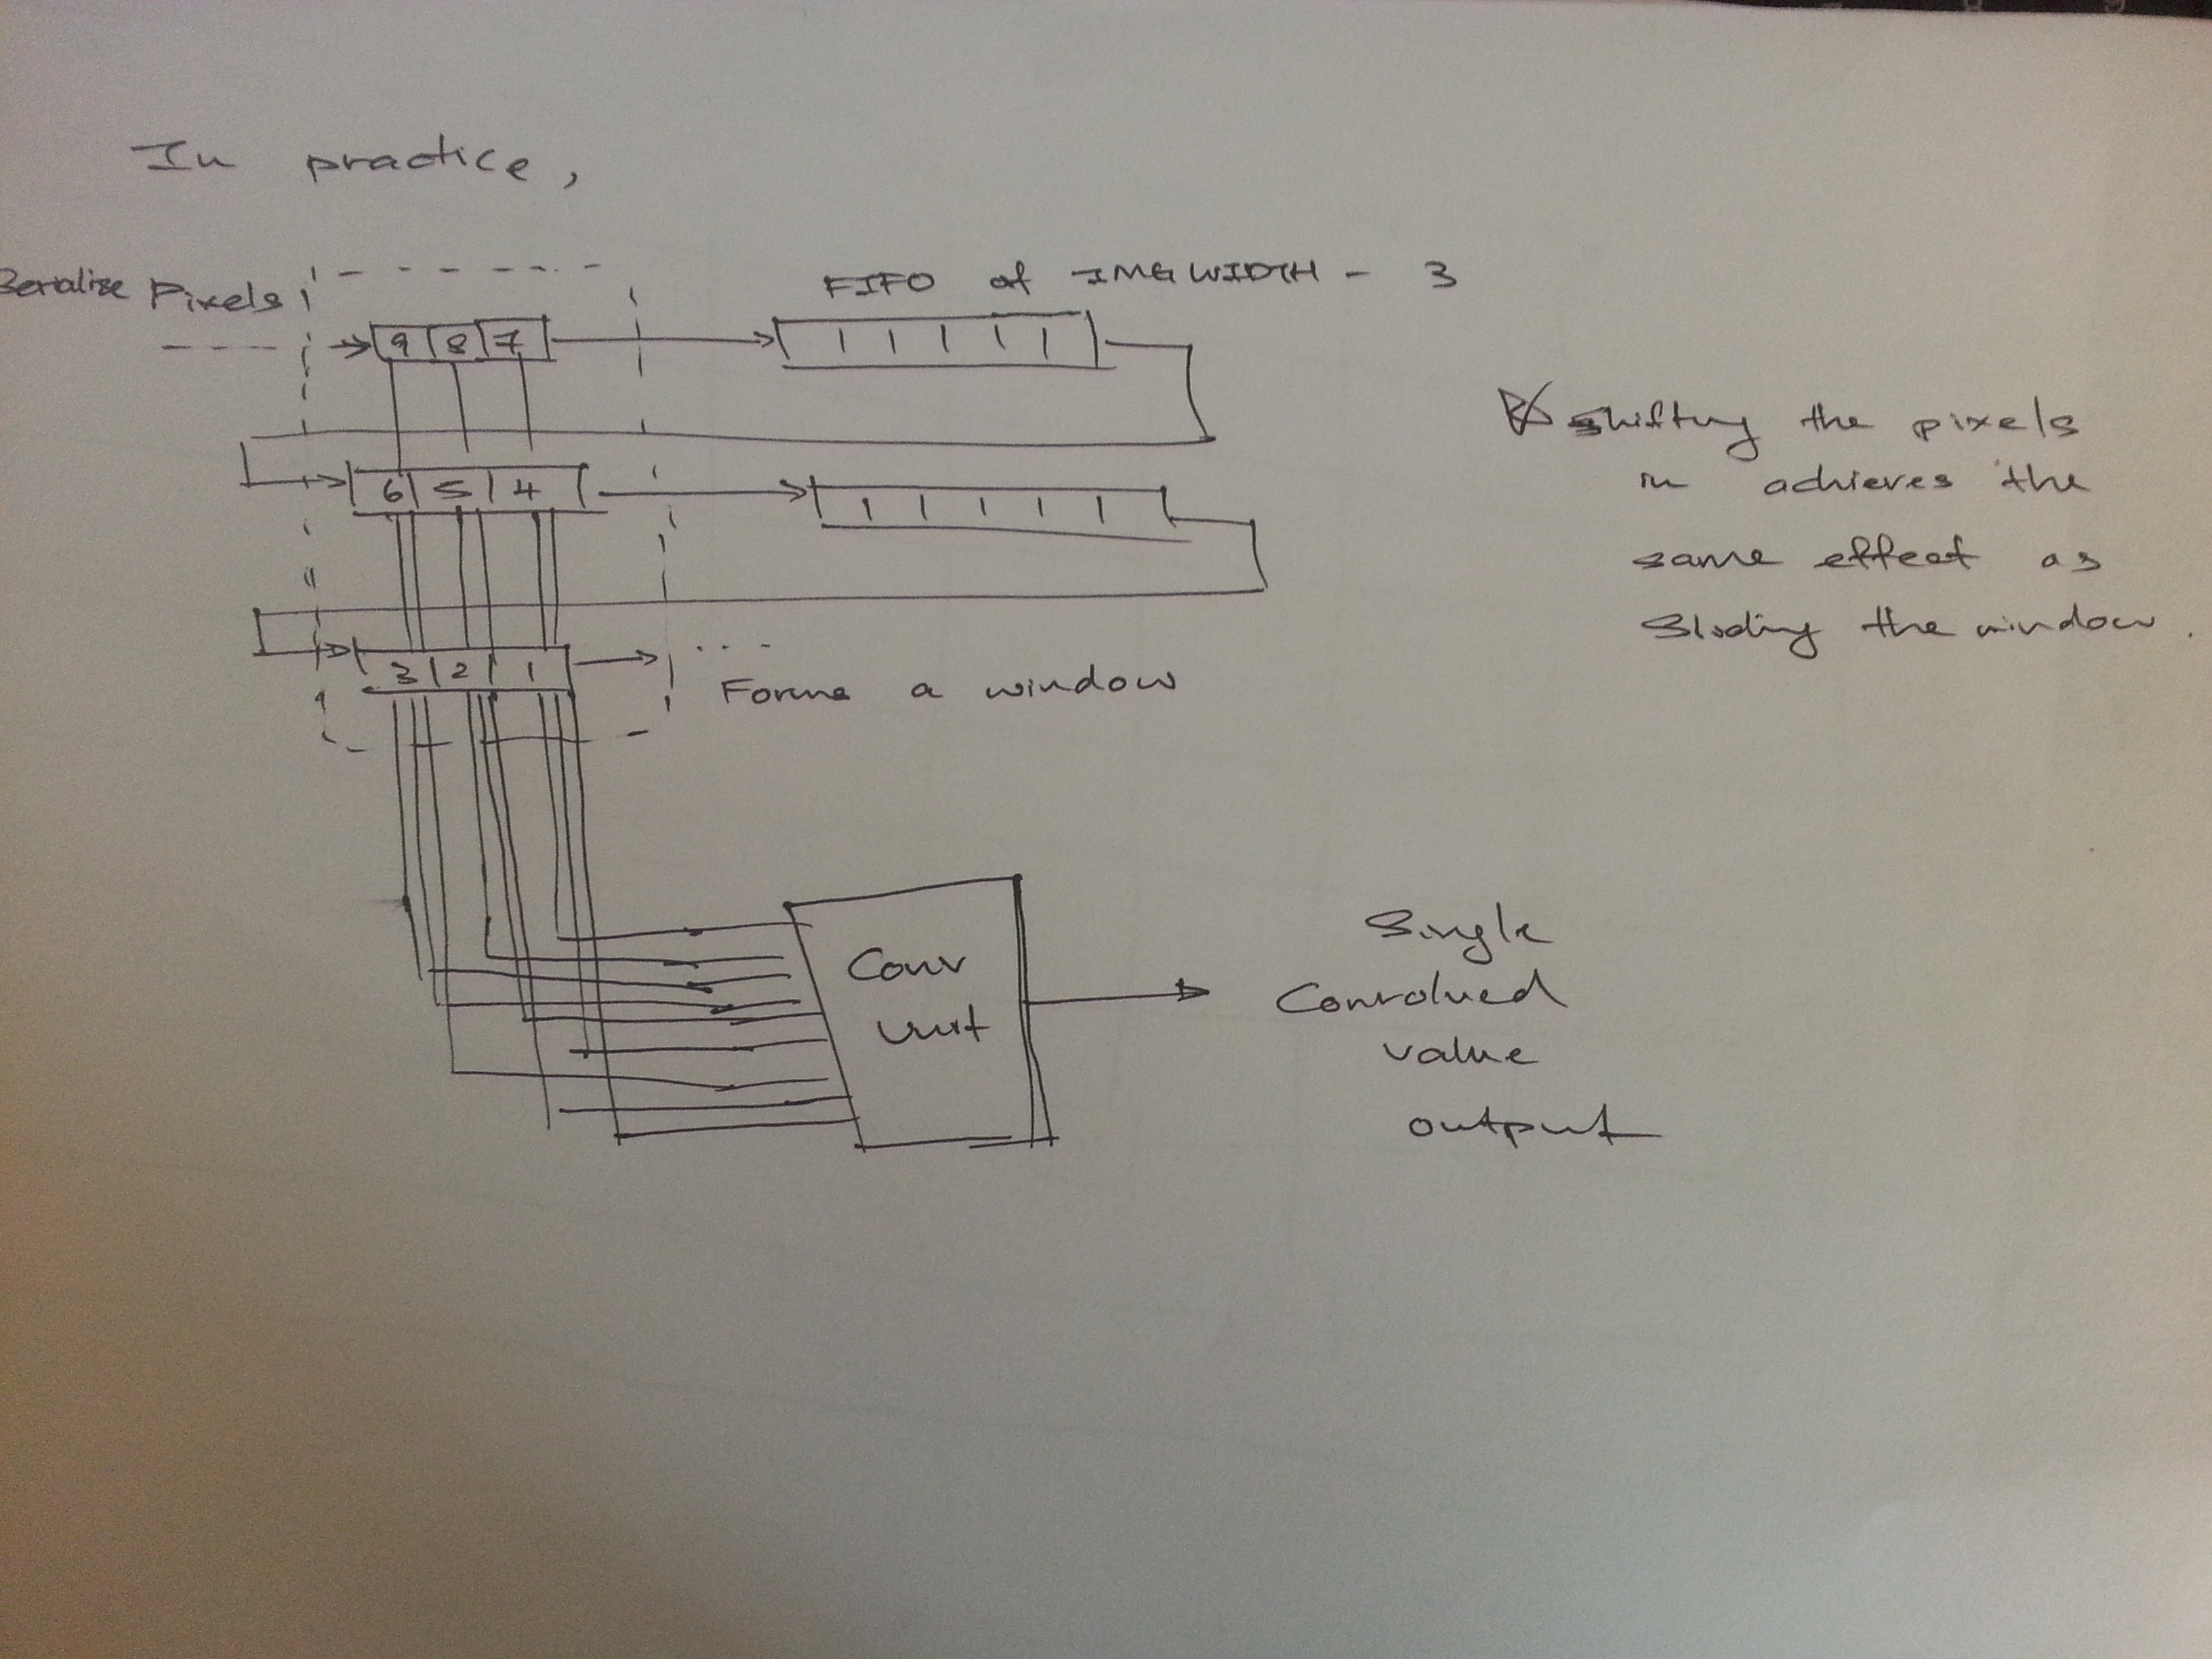 In practice,
Serialize Pixels
FIFO of IMGWIDTH - 3
9 8 7
6 5 4
3 2 1
...
Forms a window
shifting the pixels
in achieves the
same effect as
Sliding the window.
Conv
Unit
Single
Convolved
value
output